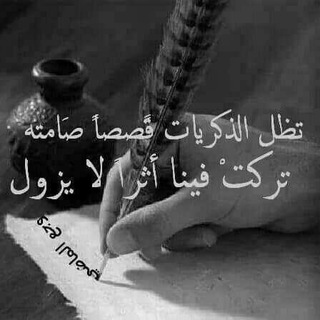 تظل الذكريات قًصصاً صَامته
تركتْ فينا أثراً لا يزول
وجع الماضي